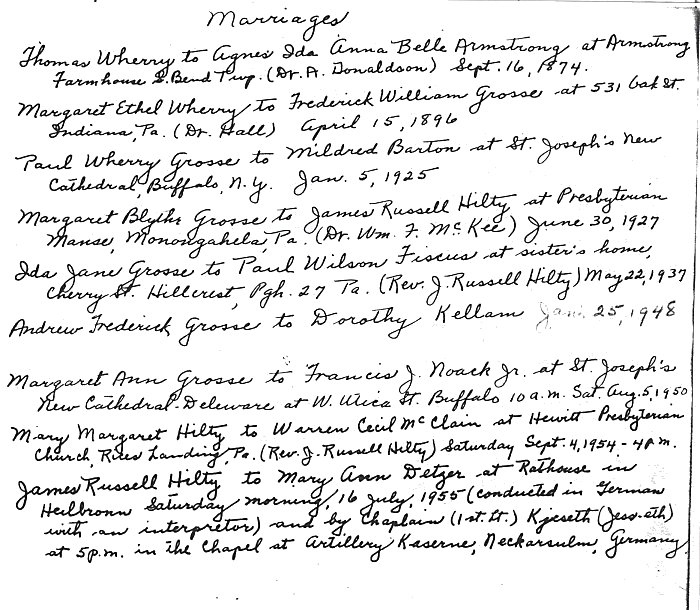 Marriages
Thomas Wherry to Agnes Ida Anna Belle Armstrong at Armstrong
Farmhouse S. Bend Twp. (Dr. A. Donaldson) Sept. 16, 1874.
Margaret Ethel Wherry to Frederick William Grosse at 531 Oak St.
Indiana, Pa. (Dr. Hall) April 15, 1896
Paul Wherry Grosse to Mildred Barton at St. Joseph's New
Cathedral, Buffalo, N.Y. Jan. 5, 1925
Margaret Blythe Grosse to James Russell Hilty at Presbyterian
Manse, Monongahela, Pa. (Dr. Wm. F. McKee) June 30, 1927
Ida Jane Grosse to Paul Wilson Fiscus at sister's home,
Cherry St. Hillcrest, Pgh. 27 Pa. (Rev. J. Russell Hilty) May 22, 1937
Andrew Frederick Grosse to Dorothy Kellam Jan. 25, 1948
Margaret Ann Grosse to Francis J. Noack Jr. at St. Joseph's
New Cathedral-Deleware at W. Utica St. Buffalo 10 a.m. Sat. Aug. 5, 1950
Mary Margaret Hilty to Warren Cecil McClain at Hewitt Presbyterian
Church, Rices Landing, Pa. (Rev. J. Russell Hilty) Saturday Sept. 4, 1954 - 4 P.M.
James Russell Hilty to Mary Ann Detzer at Rathouse in
Heilbronn Saturday morning, 16 July, 1955 (conducted in German
with an interpretor) and by Chaplain (1st. Lt.) Kjeseth (Jess-eth)
at 5 p.m. in the Chapel at Artillery Kaserne, Neckarsulm, Germany